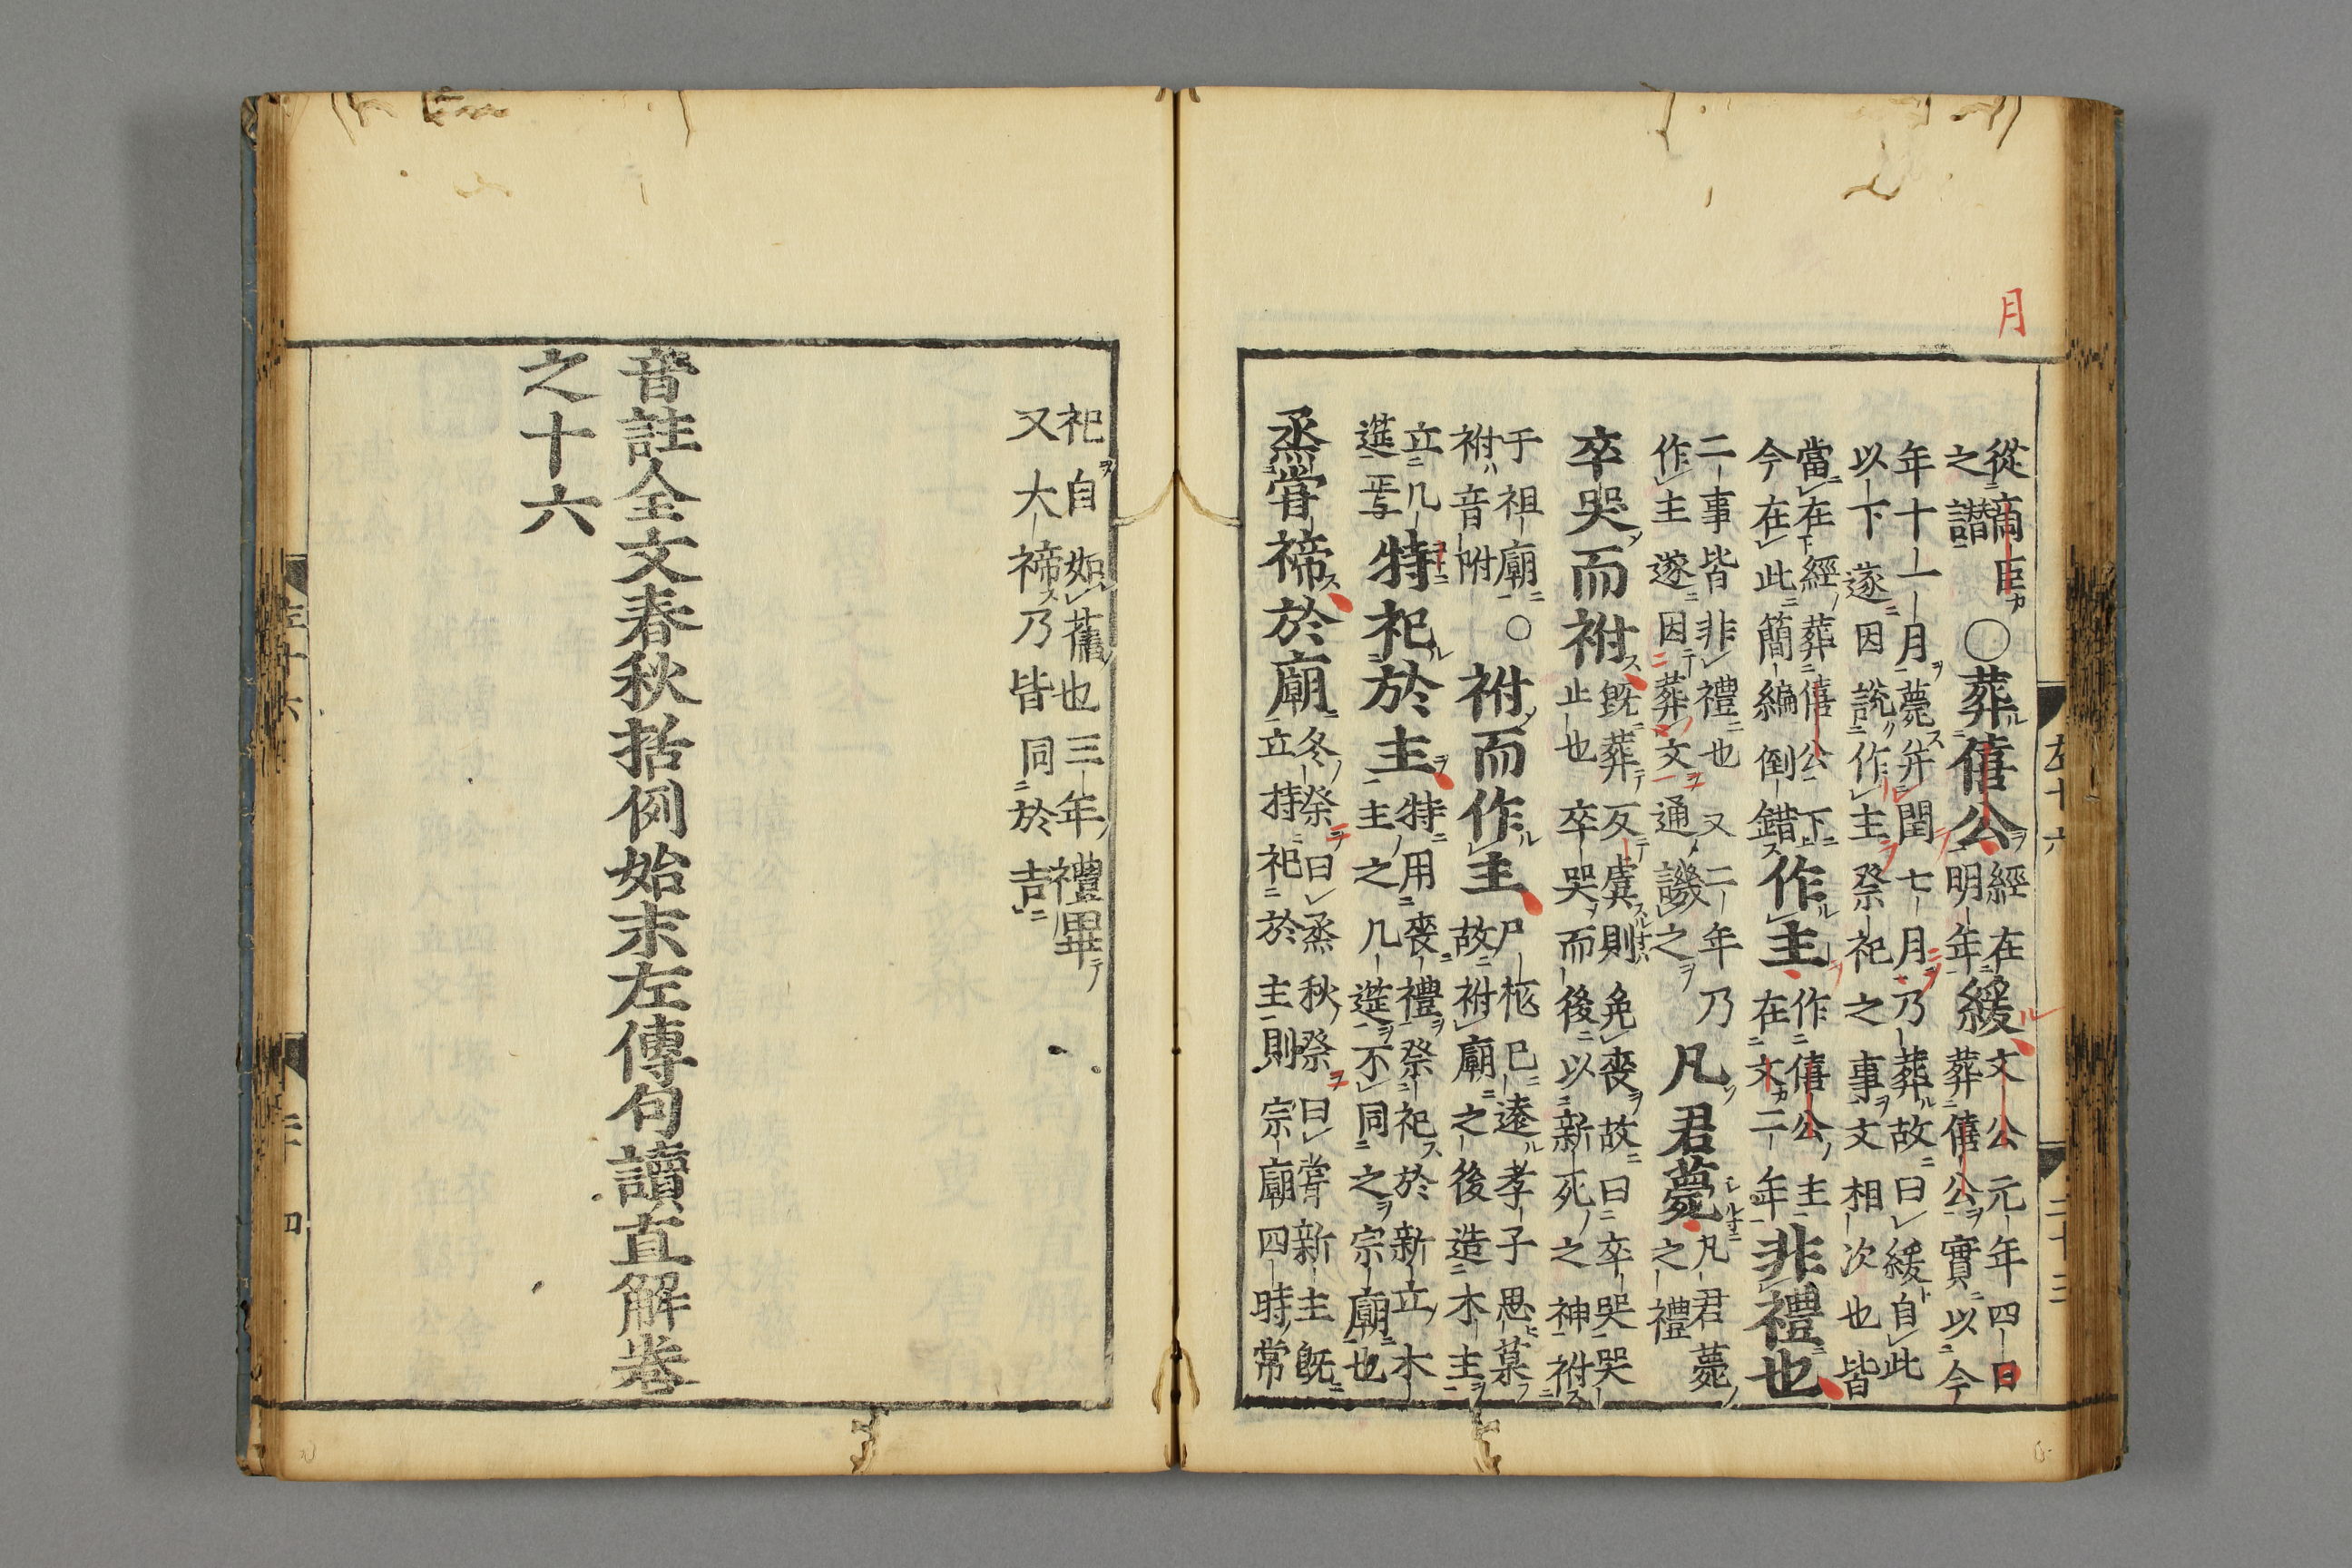 月
從商臣
之譖
○葬僖公
經在
明年
緩
文公元年四日
葬僖公實以今
年十一月薨并閏七月乃葬故曰緩自此
以下遂因說作主祭祀之事文相次也皆
當在經葬僖公下
今在此簡編倒錯
作主
作僖公主
在文二年
非禮也
二事皆非禮也又二年乃
作主遂因葬文通譏之
凡君薨
凡君薨
之禮
卒哭而祔
既葬反虞則免喪故曰卒哭哭
止也卒哭而後以新死之神祔
于祖廟
祔音附
○祔而作主
尸柩已遠孝子思慕
故祔廟之後造木主
立几
筵焉
特祀於主
特用喪禮祭祀於新立木
主之几筵不同之宗廟也
烝嘗禘於廟
冬祭曰烝秋祭曰嘗新主既
立持祀於主則宗廟四時常
祀自如舊也三年禮畢
又大禘乃皆同於吉
音註全文春秋括例始末左傳句讀直解卷
之十六